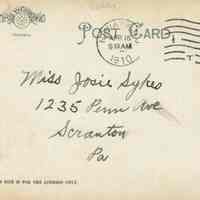 POST CARD
APR 15
1910
Miss Josie Sykes
1235 Penn Ave
Scranton
Pa
SIDE IS FOR THE ADDRESS ONLY.